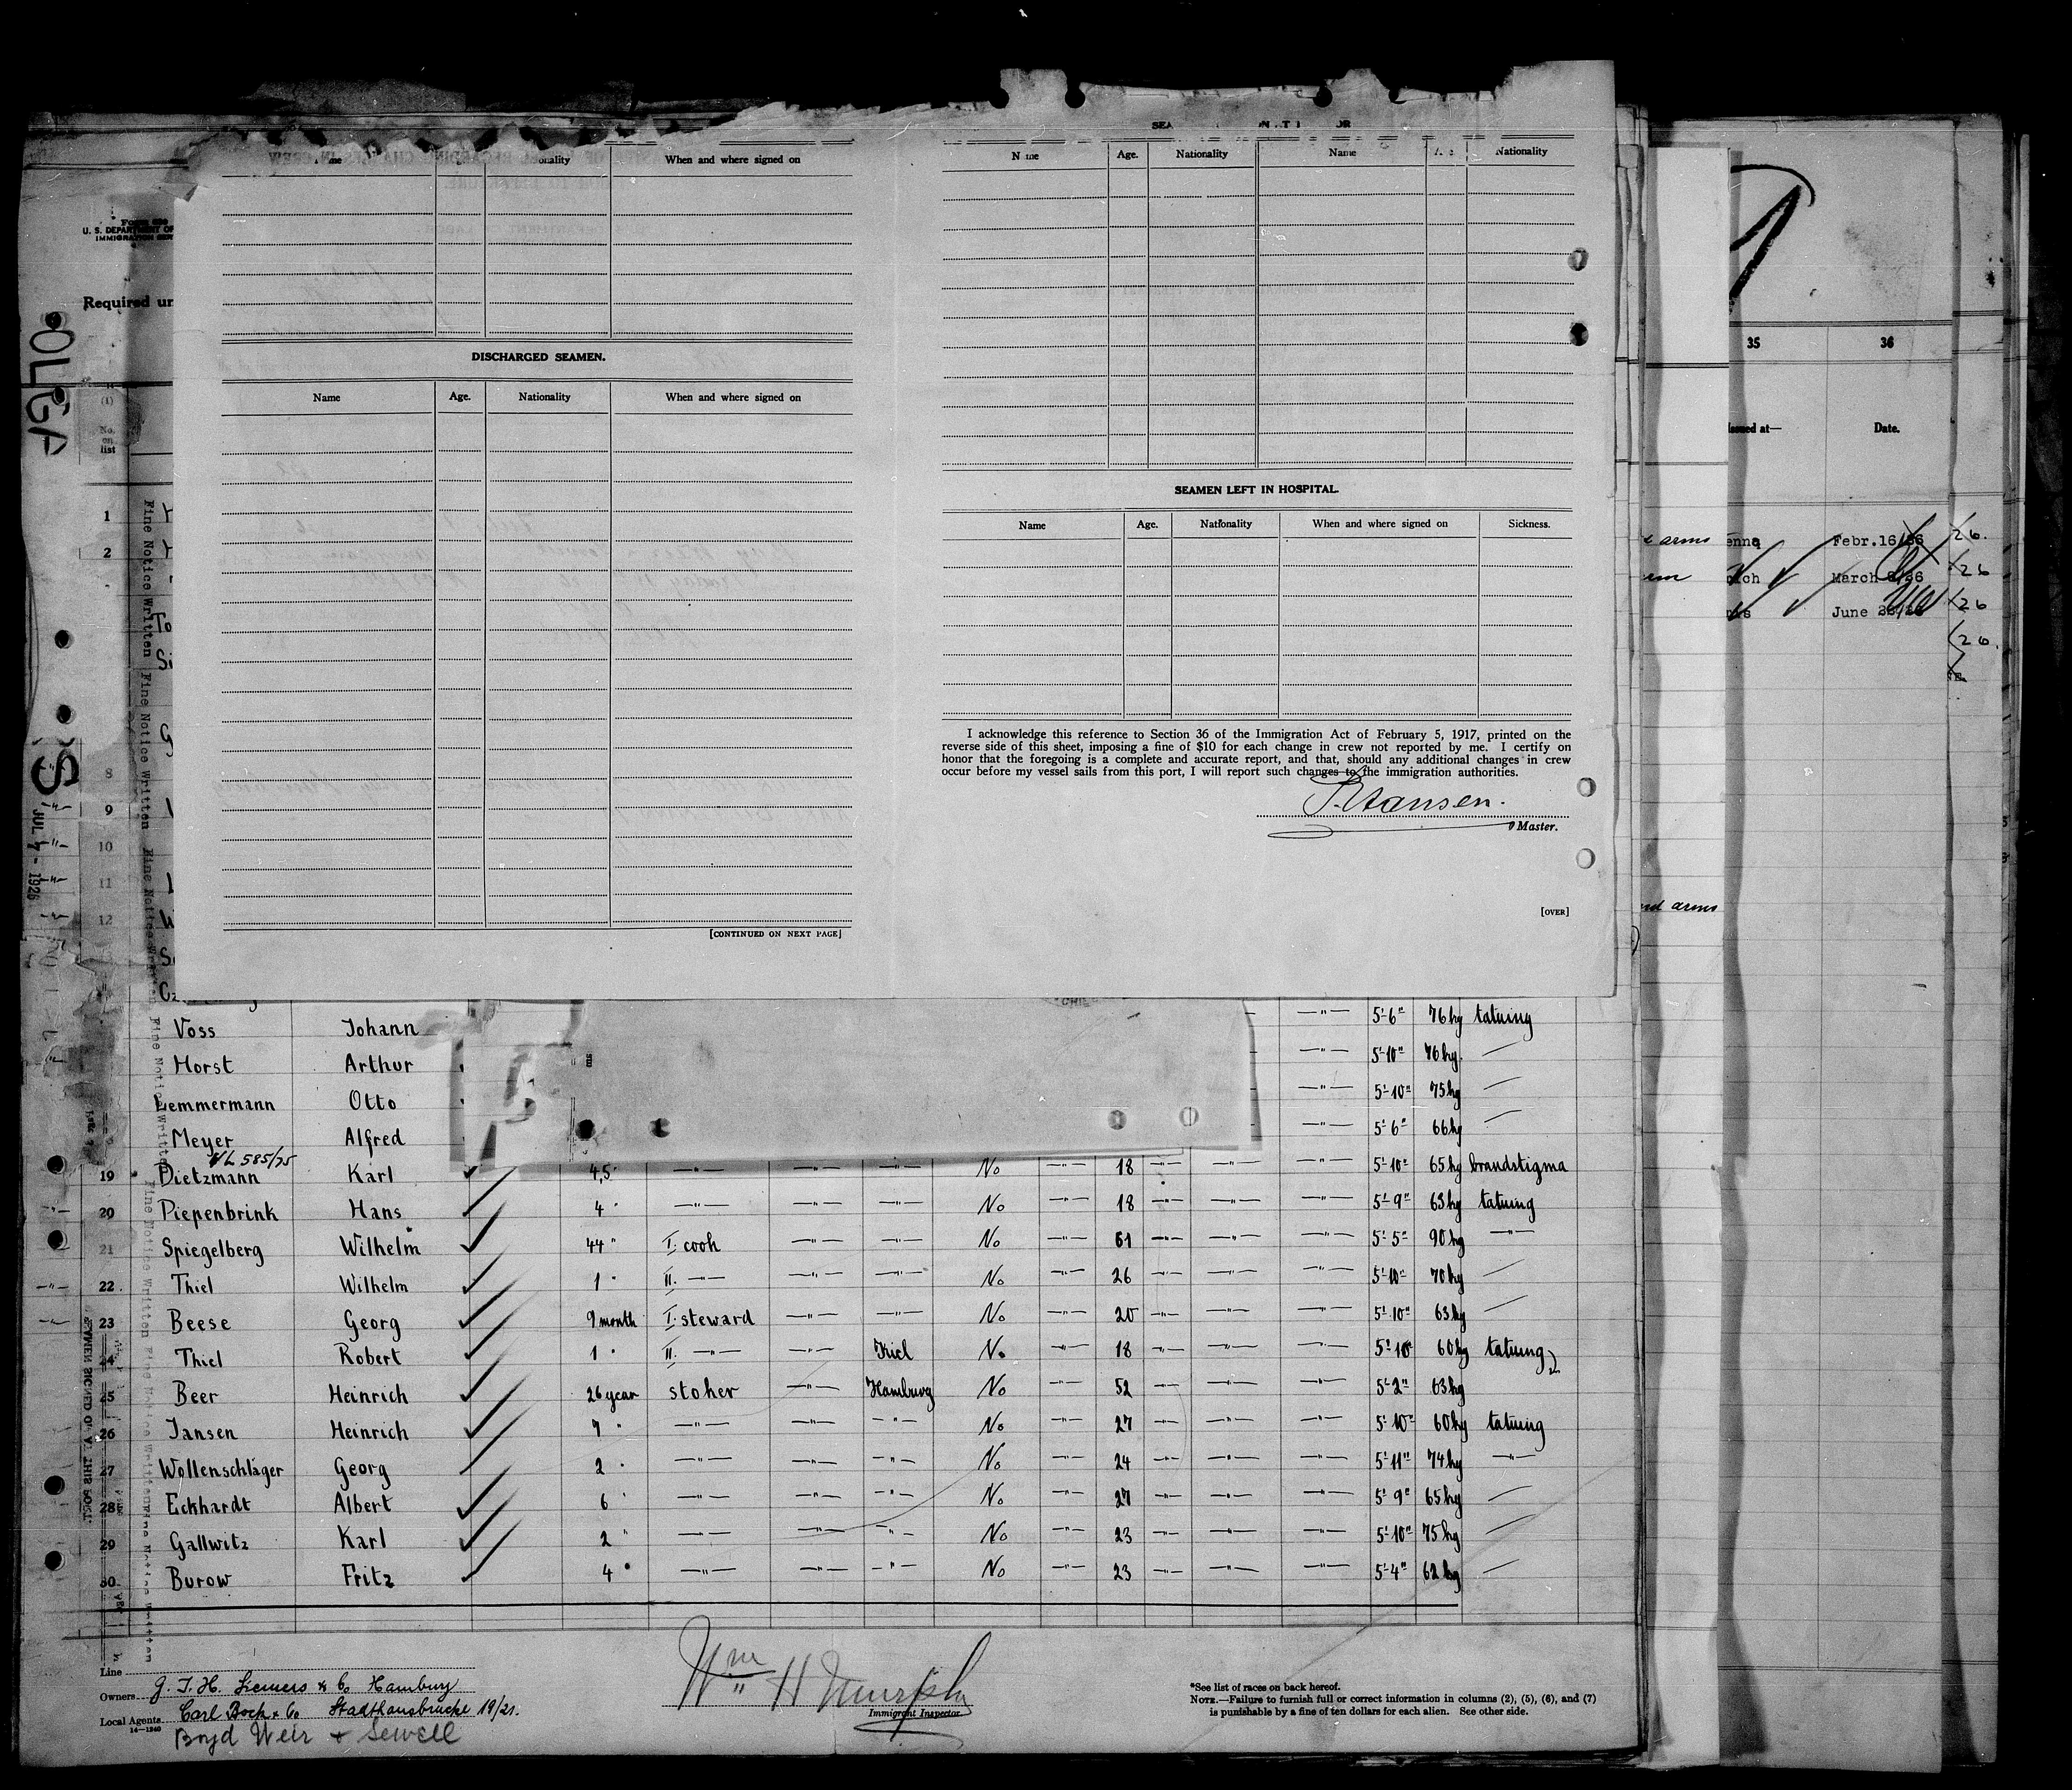 SEA
Name Age. Nationality Name Nationality
nality When and where signed on
DISCHARGED SEAMEN.
Name Age. Nationality When and where signed on
[CONTINUED ON NEXT PAGE]
SEAMEN LEFT IN HOSPITAL.
Name Age. Nationality When and where signed on Sickness.
I acknowledge this reference to Section 36 of the Immigration Act of February 5, 1917, printed on the
reverse side of this sheet, imposing a fine of $10 for each change in crew not reported by me. I certify on
honor that the foregoing is a complete and accurate report, and that, should any additional changes in crew
occur before my vessel sails from this port, I will report such changes to the immigration authorities.
Hansen.
Master.
[OVER]
U. S. DEPARTMENT OF
IMMIGRATION SER
Required un
OLGA
S
JUL 7 - 1926
(1)
No.
on
list
1
2
8
9
10
11
12
Fine Notice Written Fine Notice Written Fine Notice Written
35 36
Issued at— Date.
arms enna Febr.16/26 26.
March 26 26
June 26 26
26.
and arms
Voss Johann —"— 5'-6" 76kg tatuing
Horst Arthur —"— 5'-10" 76kg. —
Lemmermann Otto —"— 5'-10" 75kg —
Meyer Alfred —"— 5'-6" 66kg —
585/25
19 Dietzmann Karl 4,5" —"— —"— —"— No —"— 18 —"— —"— —"— 5'-10" 65kg brandstigma
20 Piepenbrink Hans 4 " —"— —"— —"— No —"— 18 —"— —"— —"— 5'-9" 63kg tatuing
21 Spiegelberg Wilhelm 44 " I. cook —"— —"— No —"— 61 —"— —"— —"— 5'-5" 90kg —"—
22 Thiel Wilhelm 1 " II. —"— —"— —"— No —"— 26 —"— —"— —"— 5'-10" 70kg —
23 Beese Georg 9 month I. steward —"— —"— No —"— 20 —"— —"— —"— 5'-10" 63kg —
24 Thiel Robert 1 " II. —"— —"— Kiel No —"— 18 —"— —"— —"— 5'-10" 60kg tatuing
25 Beer Heinrich 26 year stoker —"— Hamburg No —"— 52 —"— —"— —"— 5'-2" 63kg
26 Jansen Heinrich 7 " —"— —"— —"— No —"— 27 —"— —"— —"— 5'-10" 60kg tatuing
27 Wollenschläger Georg 2 " —"— —"— —"— No —"— 24 —"— —"— —"— 5'-11" 74kg —"—
28 Eckhardt Albert 6 " —"— —"— —"— No —"— 27 —"— —"— —"— 5'-9" 65kg —
29 Gallwitz Karl 2 " —"— —"— —"— No —"— 23 —"— —"— —"— 5'-10" 75kg —
30 Burow Fritz 4 " —"— —"— —"— No —"— 23 —"— —"— —"— 5'-4" 62kg —
Line
Owners G. J. H. Siemers & Co Hamburg
Local Agents Carl Bock & Co Stadthausbrücke 19/21.
14—1240
Boyd Weir & Sewell
Wm H Murphy
Immigrant Inspector
*See list of races on back hereof.
NOTE.—Failure to furnish full or correct information in columns (2), (5), (6), and (7)
is punishable by a fine of ten dollars for each alien. See other side.